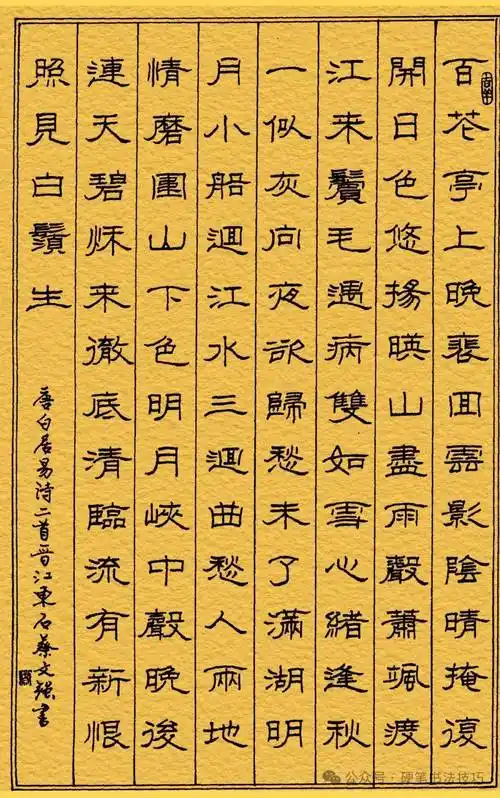 百花亭上晚裵回雲影陰晴掩復
開日色悠揚暎山盡雨聲蕭颯渡
江来鬢毛遇病雙如雪心緒逢秋
一似灰向夜欲歸愁未了滿湖明
月小船迴江水三迴曲愁人兩地
情磨圍山下色明月峽中聲晚後
連天碧秌来徹底清臨流有新恨
照見白鬚生
唐白居易诗二首晋江東石蔡文强书
公众号·硬笔书法技巧